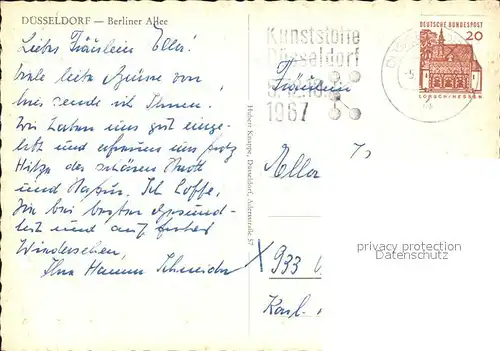 DÜSSELDORF — Berliner Allee
Liebes Fräulein Ella!
viele liebe Grüsse von
hier sende ich Ihnen.
Wir haben uns gut einge-
lebt und erfreuen uns trotz
Hitze der schönen Stadt
und Natur. Ich hoffe,
Sie bei bester Gesund-
heit und auf frohes
Wiedersehen,
Ihre Hanna Schneider
Hubert Knuppe, Düsseldorf, Adersstraße 57
Kunststoffe
Düsseldorf
1967
DEUTSCHE BUNDESPOST
20
LORSCH/HESSEN
Fräulein
Ella
933
Karl-
privacy protection
Datenschutz